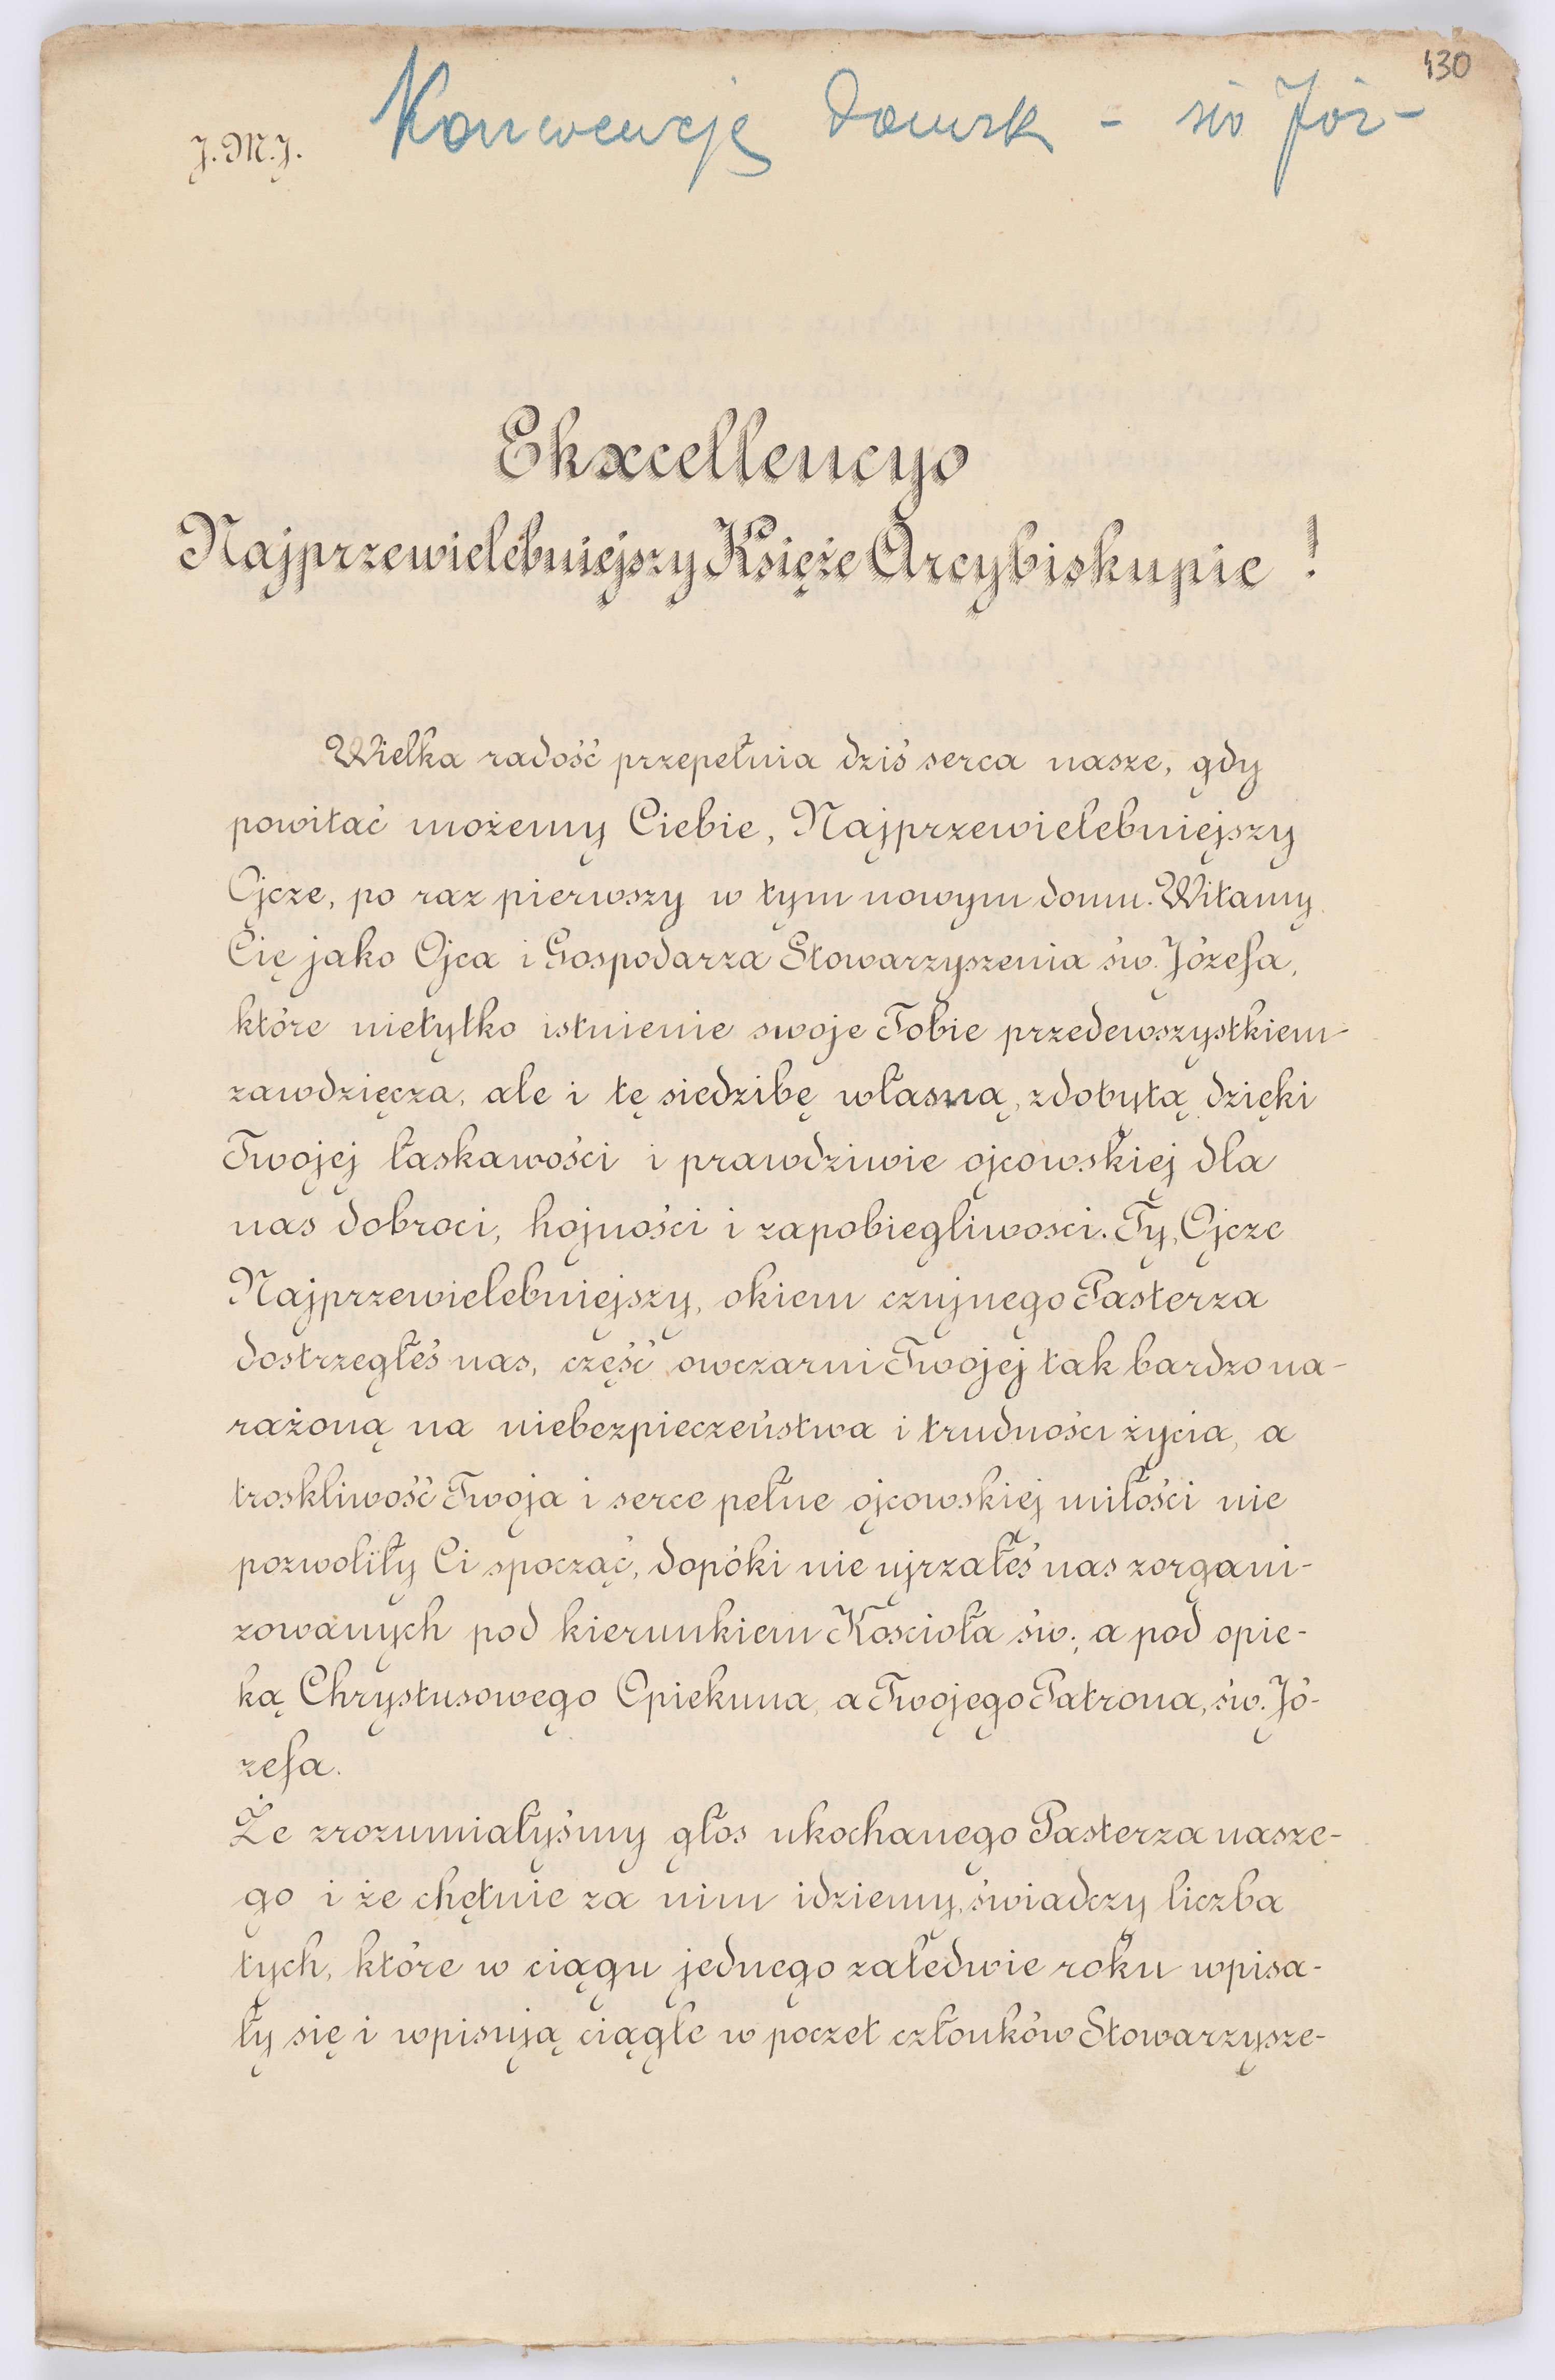 130
J. M. J.
Konwencje Damsk - św Józ-
Ekxcellencyo
Najprzewielebniejszy Księże Arcybiskupie !
Wielka radość przepełnia dziś serca nasze, gdy
powitać możemy Ciebie, Najprzewielebniejszy
Ojcze, po raz pierwszy w tym nowym domu. Witamy
Cię jako Ojca i Gospodarza Stowarzyszenia św. Józefa,
które nietylko istnienie swoje Tobie przedewszystkiem
zawdzięcza, ale i tę siedzibę własną, zdobytą dzięki
Twojej łaskawości i prawdziwie ojcowskiej dla
nas dobroci, hojności i zapobiegliwosci. Ty, Ojcze
Najprzewielebniejszy, okiem czujnego Pasterza
dostrzegłeś nas, część owczarni Twojej tak bardzo na-
rażoną na niebezpieczeństwa i trudności życia, a
troskliwość Twoja i serce pełne ojcowskiej miłości nie
pozwoliły Ci spocząć, dopóki nie ujrzałeś nas zorgani-
zowanych pod kierunkiem Kościoła św., a pod opie-
ką Chrystusowego Opiekuna, a Twojego Patrona, św. Jó-
zefa.
Że zrozumiałyśmy głos ukochanego Pasterza nasze-
go i że chętnie za nim idziemy, świadczy liczba
tych, które w ciągu jednego zaledwie roku wpisa-
ły się i wpisują ciągle w poczet członków Stowarzysze-